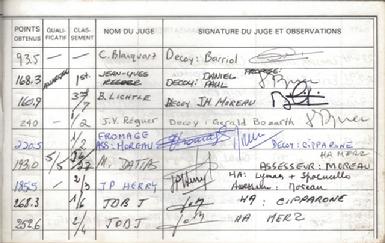 POINTS OBTENUS QUALIFICATIF CLASSEMENT NOM DU JUGE SIGNATURE DU JUGE ET OBSERVATIONS
93.5 — — C. Blacquart Decoy: Barriol
168.3 1st JEAN-YVES REGUER DECOY: DANIEL PAUL
160.9 3/7 B. LICHTLE DECOY JH MOREAU
240 — 1/2 J.Y. Reguer Decoy: Gerald Bozarth
220.5 FROMAGE ASS: MOREAU DECOY: CIPPARONE
HA MERZ
193.0 M. DATTAS ASSESSEUR: MOREAU
185.5 — 2/3 JP HERRY HA: Lyman +
268.3 1/6 JOB J HA: CIPPARONE
252.6 2/4 JOB J HA MERZ